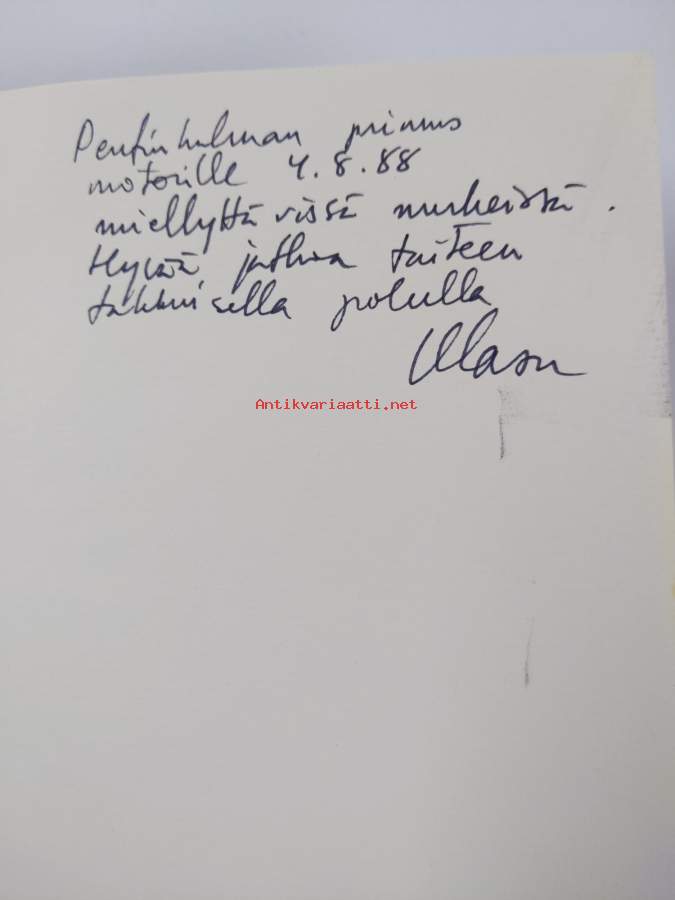 Pentinkulman primus
motorille 4.8.88
miellyttävissä merkeissä.
Hyvää jatkoa taiteen
takkuisella polulla
Antikvariaatti.net